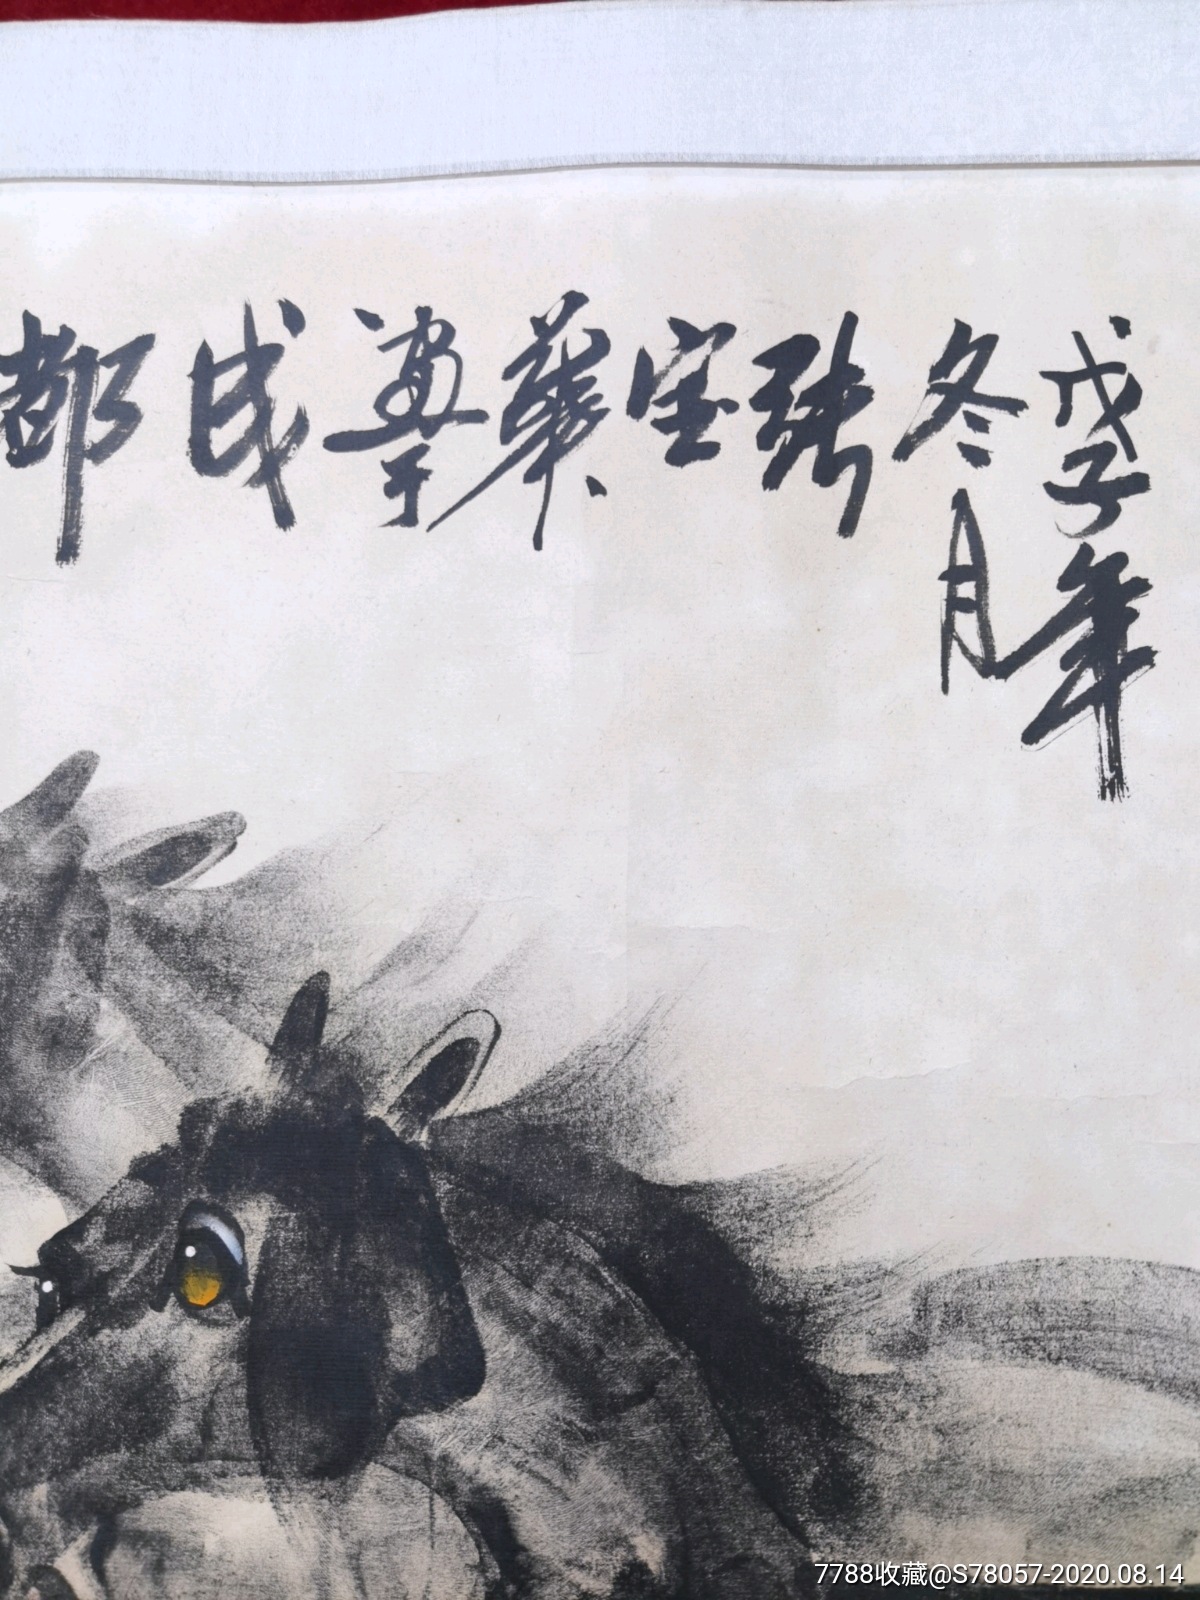 戊子年
冬月
张宝华画于成都
7788收藏@S78057-2020.08.14